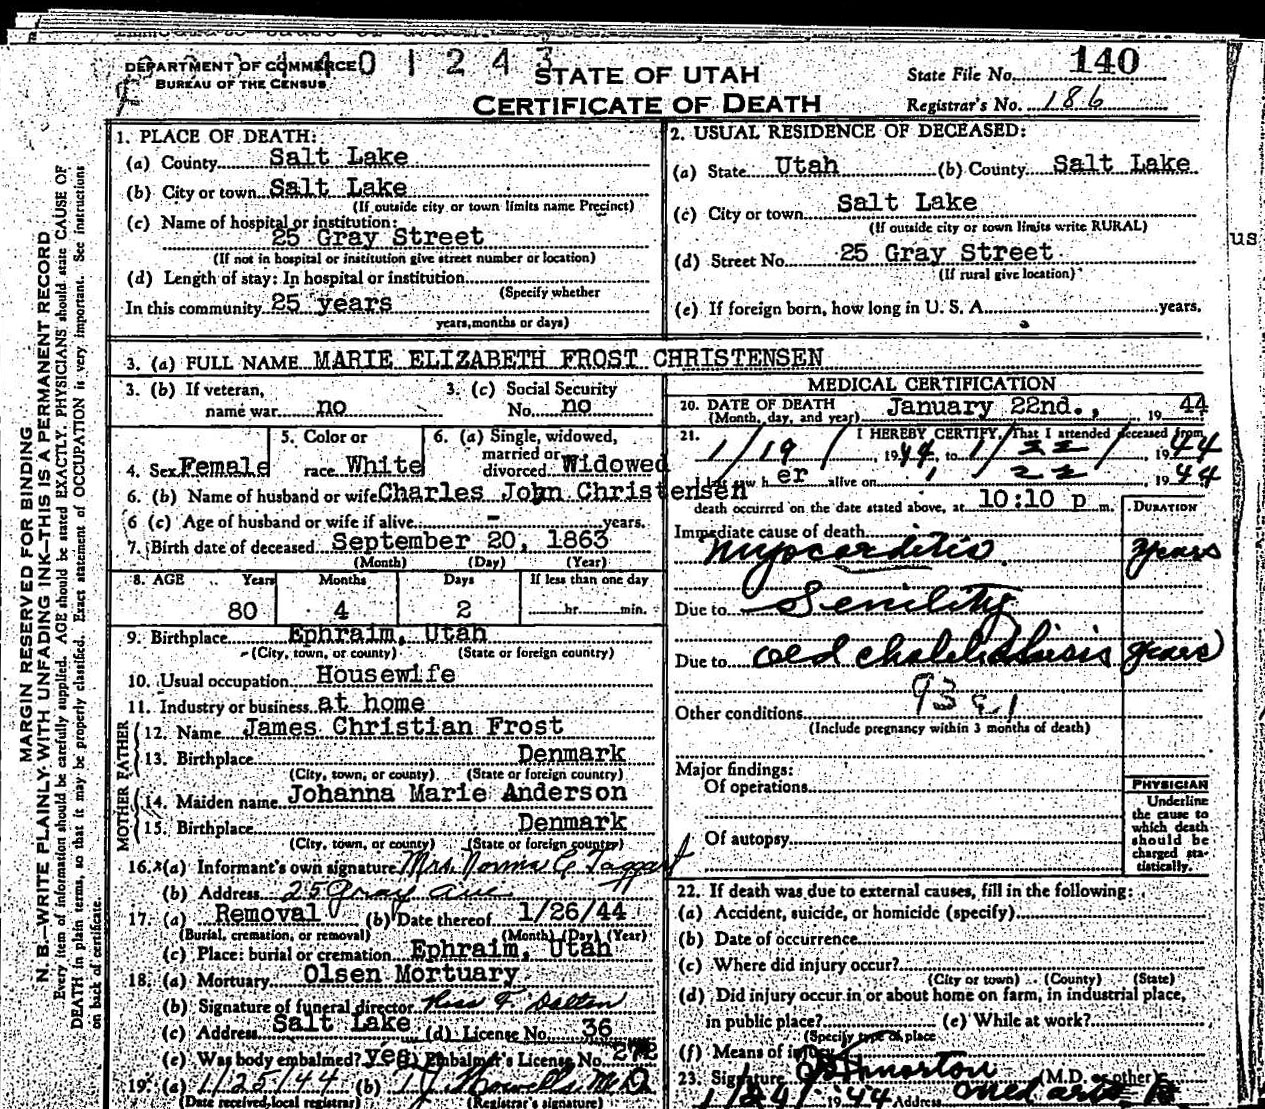 DEPARTMENT OF COMMERCE
BUREAU OF THE CENSUS
1401243
STATE OF UTAH
CERTIFICATE OF DEATH
State File No. 140
Registrar's No. 186
MARGIN RESERVED FOR BINDING
N. B.—WRITE PLAINLY WITH UNFADING INK—THIS IS A PERMANENT RECORD
Every item of information should be carefully supplied. AGE should be stated EXACTLY. PHYSICIANS should state CAUSE OF
DEATH in plain terms, so that it may be properly classified. Exact statement of OCCUPATION is very important. See instructions
on back of certificate.
1. PLACE OF DEATH:
(a) County Salt Lake
(b) City or town Salt Lake
(If outside city or town limits name Precinct)
(c) Name of hospital or institution:
25 Gray Street
(If not in hospital or institution give street number or location)
(d) Length of stay: In hospital or institution
(Specify whether
In this community 25 years
years, months or days)
2. USUAL RESIDENCE OF DECEASED:
(a) State Utah (b) County Salt Lake
(c) City or town Salt Lake
(If outside city or town limits write RURAL)
(d) Street No. 25 Gray Street
(If rural give location)
(e) If foreign born, how long in U. S. A. years.
us
3. (a) FULL NAME MARIE ELIZABETH FROST CHRISTENSEN
3. (b) If veteran, name war no
3. (c) Social Security No. no
4. Sex Female
5. Color or race White
6. (a) Single, widowed, married or divorced Widowed
6. (b) Name of husband or wife Charles John Christensen
6 (c) Age of husband or wife if alive - years.
7. Birth date of deceased September 20, 1863
(Month) (Day) (Year)
8. AGE Years Months Days If less than one day
80 4 2 hr. min.
9. Birthplace Ephraim, Utah
(City, town, or county) (State or foreign country)
10. Usual occupation Housewife
11. Industry or business at home
FATHER
12. Name James Christian Frost
13. Birthplace Denmark
(City, town, or county) (State or foreign country)
MOTHER
14. Maiden name Johanna Marie Anderson
15. Birthplace Denmark
(City, town, or county) (State or foreign country)
16. (a) Informant's own signature Mrs. Norma C. Taggart
(b) Address 25 Gray Ave
17. (a) Removal (b) Date thereof 1/26/44
(Burial, cremation, or removal) (Month) (Day) (Year)
(c) Place: burial or cremation Ephraim, Utah
18. (a) Mortuary Olsen Mortuary
(b) Signature of funeral director F. Dalton
(c) Address Salt Lake (d) License No. 36
(e) Was body embalmed? yes Embalmer's License No. 272
19. (a) 1/25/44 (b) M.D.
(Date received local registrar) (Registrar's signature)
MEDICAL CERTIFICATION
20. DATE OF DEATH January 22nd., 1944
(Month, day, and year)
21. I HEREBY CERTIFY, That I attended deceased from
1/19/, 1944, to 1/22/, 1944
last saw her alive on 1 22, 1944
death occurred on the date stated above, at 10:10 p m.
DURATION
Immediate cause of death
Myocarditis years
Due to Senility
Due to old years
93
Other conditions
(Include pregnancy within 3 months of death)
Major findings:
Of operations
Of autopsy
PHYSICIAN
Underline
the cause to
which death
should be
charged sta-
tistically.
22. If death was due to external causes, fill in the following:
(a) Accident, suicide, or homicide (specify)
(b) Date of occurrence
(c) Where did injury occur?
(City or town) (County) (State)
(d) Did injury occur in or about home on farm, in industrial place,
in public place? (e) While at work?
(Specify type of place
(f) Means of injury
23. Signature (M.D. or other)
1/24/ 1944 Address Med arts